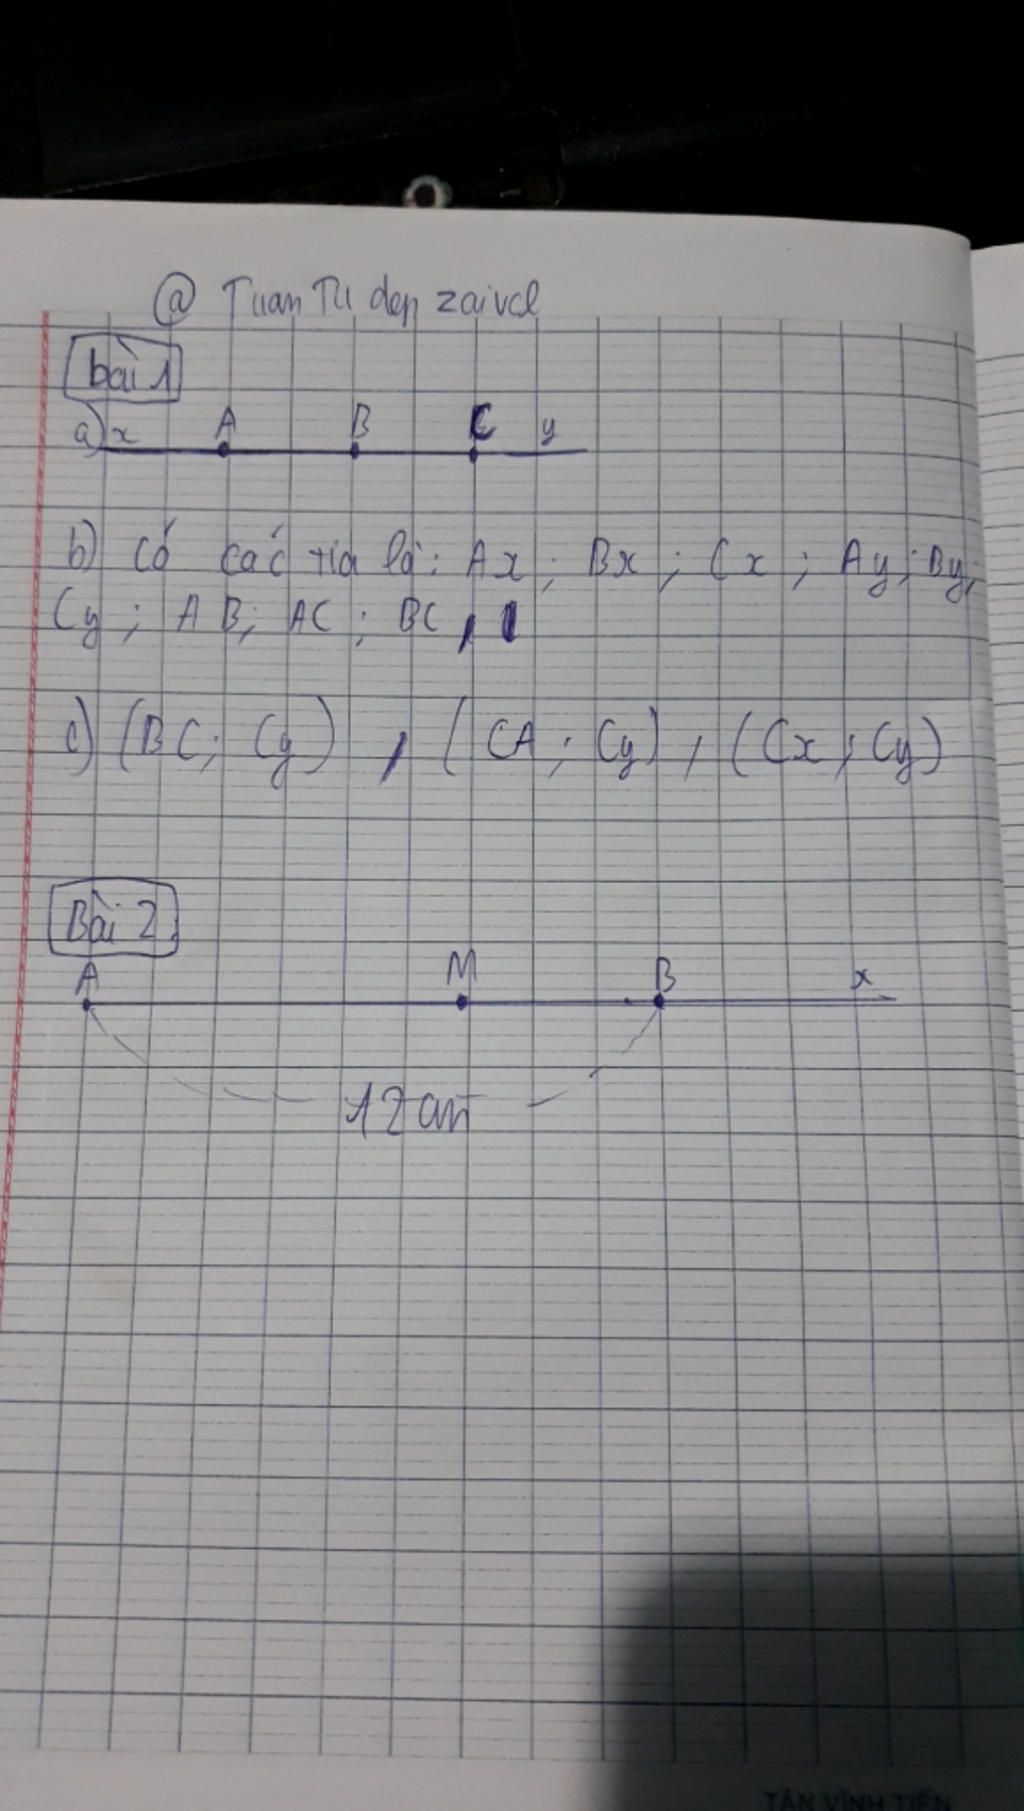 @ Tuan Tu dep zaivcl
bài 1
a) x A B C y
b) Có các tia là: Ax; Bx; Cx; Ay; By;
Cy; AB; AC; BC,
c) (BC; Cy), (CA; Cy), (Cx; Cy)
Bài 2
A M B x
12cm
TÂN VĨNH TIẾN